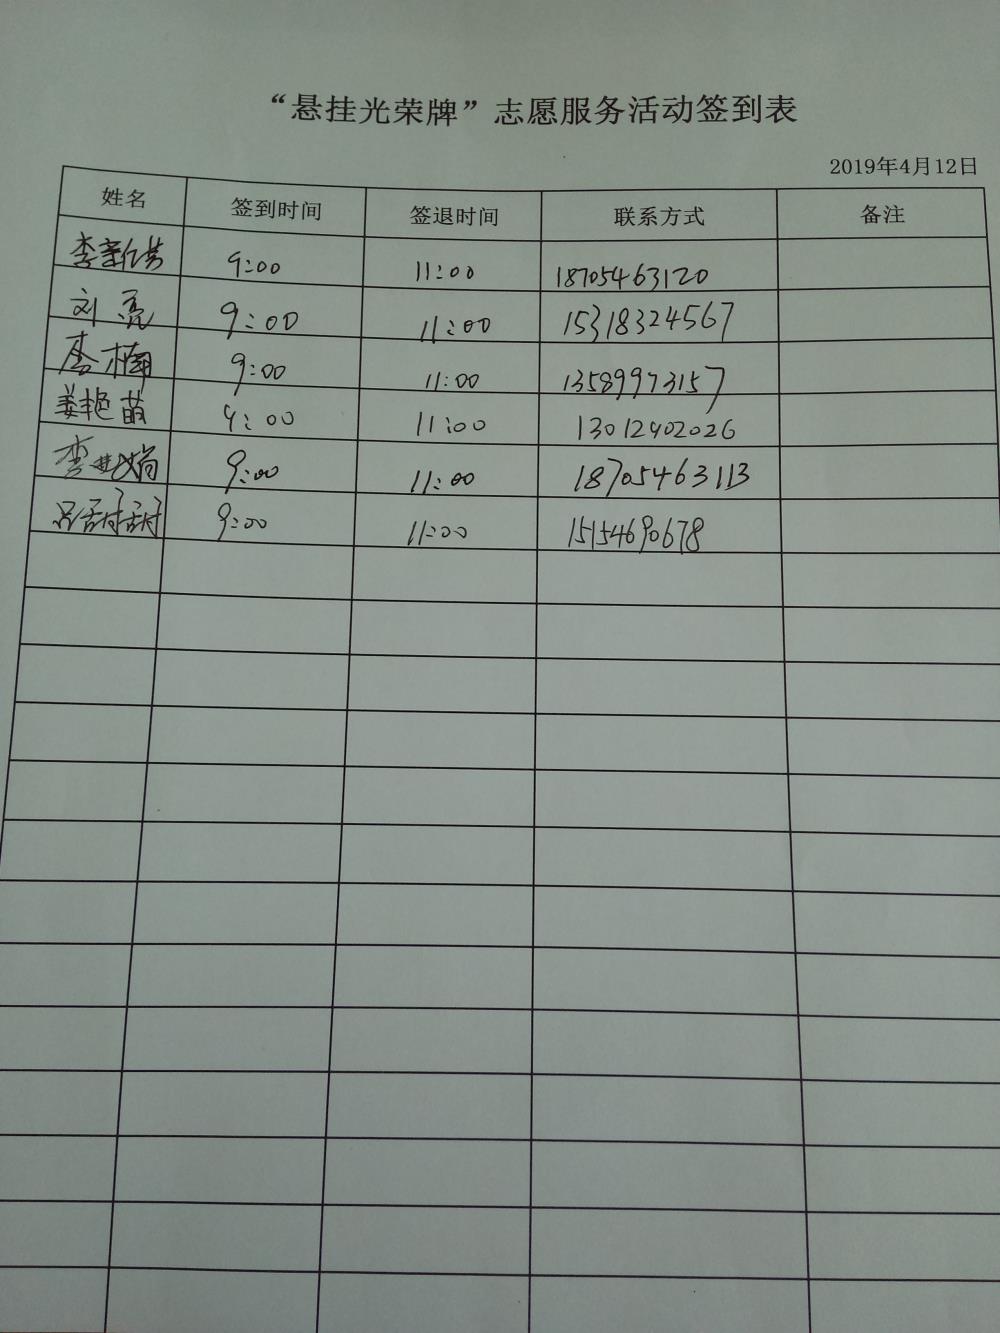 “悬挂光荣牌”志愿服务活动签到表
2019年4月12日
姓名 签到时间 签退时间 联系方式 备注
9:00 11:00 18705463120
刘亮 9:00 11:00 15318324567
李楠 9:00 11:00 13589973157
姜艳苗 9:00 11:00 13012402026
李 9:00 11:00 18705463113
吕甜甜 9:00 11:00 15154690678